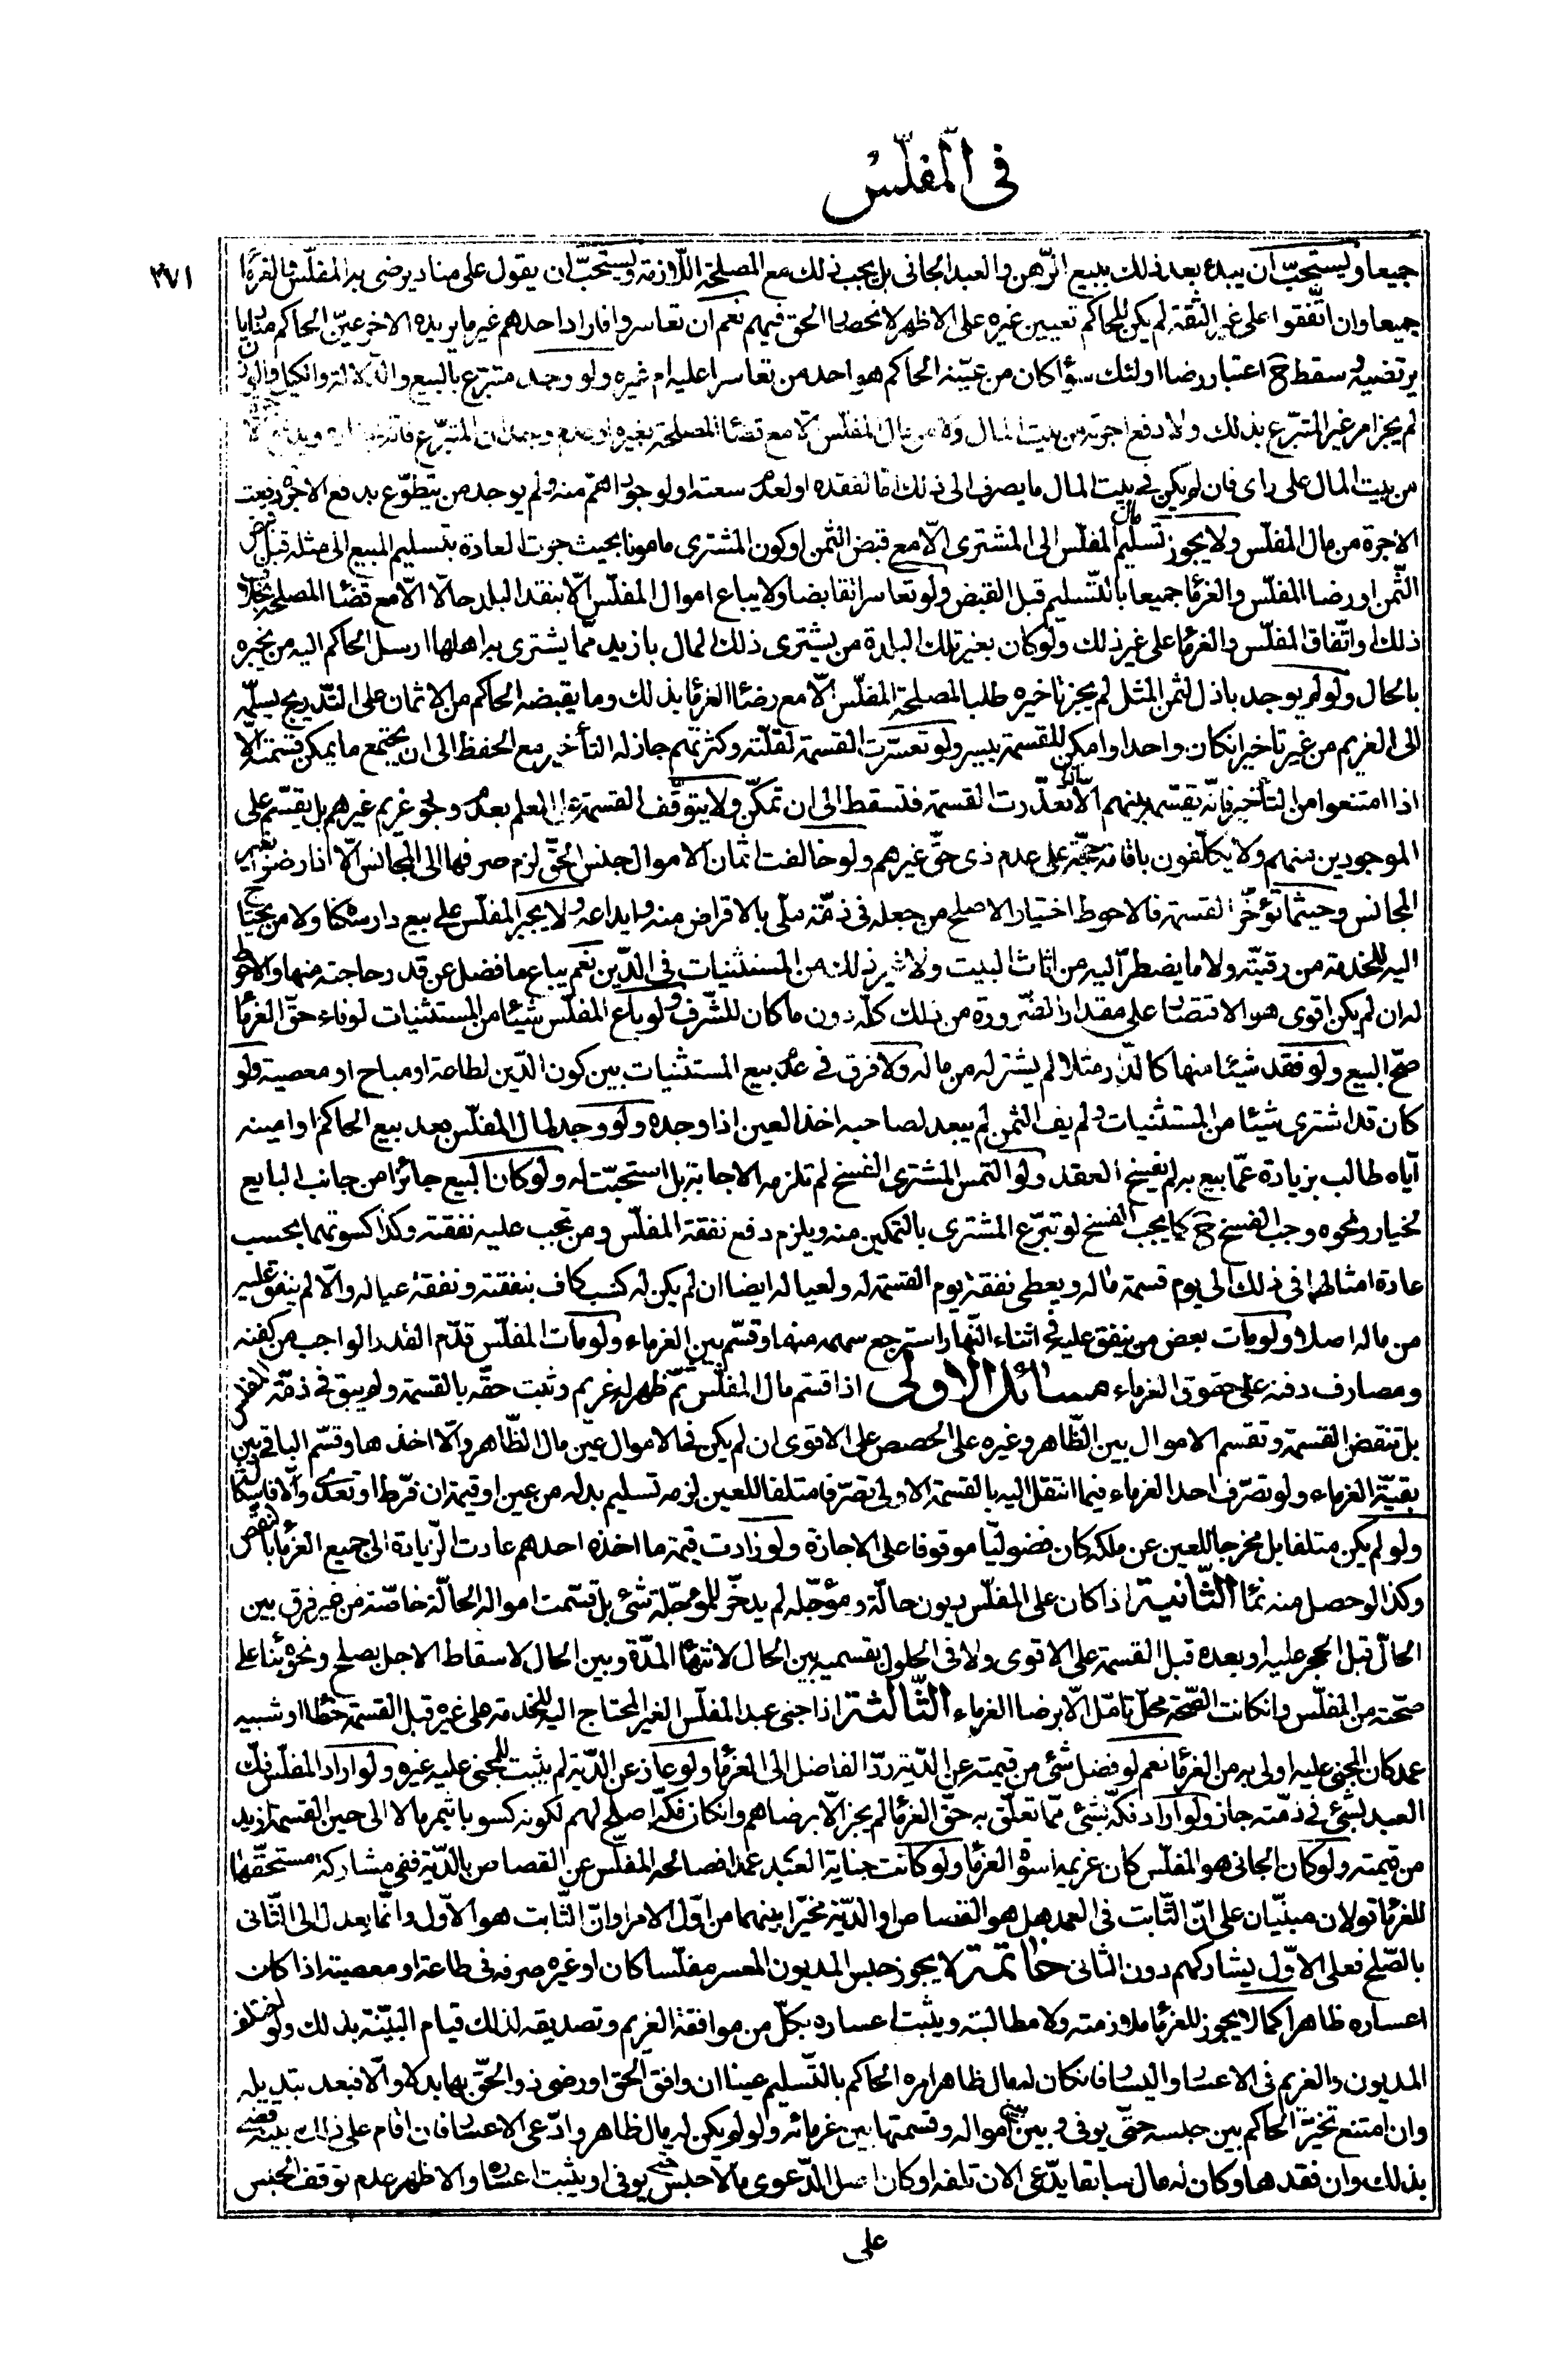 فى المفلّس
٣٧١
جميعا ويستحبّ ان يبدء بعد ذلك ببيع الرّهن والعبد الجانى بل يجب ذلك مع المصلحة اللّازمة ويستحبّ ان يقول على مناد يرضى به المفلّس والغرمآء
جميعا وان اتّفقوا على غير الثّقة لم يكن للحاكم تعيين غيره على الاظهر لانحصار الحق فيهم نعم ان تعاسروا فاراد احدهم غير ما يريده الاخر عيّن الحاكم مناديا
يرتضيه و سقط ح اعتبار رضا اولئك سوآء كان من عيّنه الحاكم هو احد من تعاسرا عليه ام غيره ولو وجد متبرّع بالبيع والدّلالة والكيل والوزن
لم يجز امر غير المتبرّع بذلك ولا دفع اجرته من بيت المال ولا من مال المفلّس الّا مع قضآء المصلحة بغيره
من بيت المال على راى فان لم يكن فى بيت المال ما يصرف الى ذلك امّا لفقده او لعدم سعته او لوجود اهمّ منه ولم يوجد من يتطوّع به دفع الاجرة دفعت
الاجرة من مال المفلّس ولا يجوز تسليم مال المفلّس الى المشترى الّا مع قبض الثّمن او كون المشترى مامونا بحيث جرت العادة بتسليم المبيع الى مثله قبل قبض
الثّمن او رضا المفلّس والغرمآء جميعا بالتّسليم قبل القبض ولو تعاسرا تقابضا ولا يباع اموال المفلّس الّا بنقد البلد حالّا الّا مع قضآء المصلحة بخلاف
ذلك او اتّفاق المفلّس والغرمآء على غير ذلك ولو كان بغير تلك البلدة من يشترى ذلك المال بازيد ممّا يشترى به اهلها ارسل الحاكم اليه من يخبره
بالحال ولو لم يوجد باذل لثمن المثل لم يجز تاخيره طلبا لمصلحة المفلّس الّا مع رضآء الغرمآء بذلك وما يقبضه الحاكم من الاثمان على التّدريج يسلّمه
الى الغريم من غير تاخير ان كان واحدا او امكن للقسمة بيسر ولو تعسّرت القسمة لقلّته وكثرتهم جاز له التأخير مع الحفظ الى ان يجتمع ما يمكن قسمته الّا
اذا امتنعوا من التأخير فانّه يقسّم بينهم الّا ان تعذّرت القسمة فتسقط الى ان تمكّن ولا يتوقّف القسمة على العلم بعدم وجود غريم غيرهم بل يقسّم على
الموجودين منهم ولا يكلّفون باقامة حجّة على عدم ذى حقّ غيرهم ولو خالفت اثمان الاموال جنس الحقّ لزم صرفها الى المجانس الّا اذا رضوا بغير
المجانس وحيثما تؤخّر القسمة فالاحوط اختيار الاصلح من جعله فى ذمّة ملّى بالاقراض منه و ايداعه ولا يجبر المفلّس على بيع دار سكناه ولا من يحتاج
اليه للخدمة من رقيّته ولا ما يضطرّ اليه من اثاث البيت ولا غير ذلك من المستثنيات فى الدّين نعم يباع ما فضل عن قدر حاجته منها والاحوط
له ان لم يكن اقوى هو الاقتصار على مقدار الضّرورة من ذلك كلّه دون ما كان للشّرف ولو باع المفلّس شيئا من المستثنيات لوفاء حقّ الغرمآء
صحّ البيع ولو فقد شيئا منها كالدّار مثلا لم يشتر له من ماله ولا فرق فى عدم بيع المستثنيات بين كون الدّين لطاعة او مباح او معصية ولو
كان قد اشترى شيئا من المستثنيات ولم يف الثّمن لم يبعد لصاحبه اخذ العين اذا وجده ولو وجد لمال المفلّس بعد بيع الحاكم او امينه
ايّاه طالب بزيادة عمّا بيع به لم يفسخ العقد ولو التمس المشترى الفسخ لم تلزمه الاجابة بل استحبّت له ولو كان البيع جائزا من جانب البايع
لخيار ونحوه وجب الفسخ ح كما يجب الفسخ لو تبرّع المشترى بالتمكين منه ويلزم دفع نفقة المفلّس ومن تجب عليه نفقته وكذا كسوتهما بحسب
عادة امثالهما فى ذلك الى يوم قسمة ماله ويعطى نفقة يوم القسمة له ولعياله ايضا ان لم يكن له كسب كاف بنفقته ونفقة عياله والّا لم ينفق عليه
من ماله اصلا ولو مات بعض من ينفق عليه فى اثناء النّهار استرجع سهمه منها وقسّم بين الغرماء ولو مات المفلّس قدّم القدر الواجب من كفنه
ومصارف دفنه على حقوق الغرماء مسائل الاولى اذا قسّم مال المفلّس ثمّ ظهر له غريم وثبت حقّه بالقسمة ولم يبق فى ذمّة المفلّس
بل تنقض القسمة وتقسم الاموال بين الظّاهر وغيره على الحصص على الاقوى ان لم يكن فى الاموال عين مال الظّاهر والّا اخذها وقسّم الباقى بين
بقيّة الغرماء ولو تصرّف احد الغرماء فيما انتقل اليه بالقسمة الاولى تصرّفا متلفا للعين لزمه تسليم بدله من عين او قيمة ان فرّط او تعدّى والّا
ولو لم يكن متلفا بل مخرجا للعين عن ملكه كان فضوليّا موقوفا على الاجازة ولو زادت قيمة ما اخذه احدهم عادت الزّيادة الى جميع الغرمآء بالنقض
وكذا لو حصل منه نمآء الثّانية اذا كان على المفلّس ديون حالّة ومؤجّله لم يدخّر للمؤجّلة شئ بل قسّمت امواله الحالّة خاصّة من غير فرق بين
الحالّ قبل الحجر عليه او بعده قبل القسمة على الاقوى ولا فى الحلول بقسميه بين الحال لانتهآء المدّة وبين الحال لاسقاط الاجل بصلح ونحوه بنآء على
صحّته من المفلّس وانكانت الصّحة محلّ تامّل الّا برضا الغرماء الثّالثة اذا جنى عبد المفلّس الغير المحتاج اليه للخدمة على غيره قبل القسمة خطآء او شبيه
عمد كان المجنى عليه اولى به من الغرمآء نعم لو فضل شئ من قيمته عن الدّية ردّ الفاضل الى الغرمآء ولو عاز عن الدّية لم يثبت للمجنى عليه غيره ولو اراد المفلّس فكّ
العبد بشئ فى ذمّته جاز ولو اراد فكّه بشئ ممّا تعلّق به حقّ الغرمآء لم يجز الّا برضاهم وانكان فكّه اصلح لهم لكونه كسوبا يثمر مالا الى حين القسمة ازيد
من قيمته ولو كان الجانى هو المفلّس كان غريمه اسوة الغرمآء ولو كانت جناية العبد عمدا فصالحه المفلّس عن القصاص بالدّية ففى مشاركة مستحقّها
للغرمآء قولان مبنيّان على انّ الثّابت فى العمد هل هو القصاص او الدّية مخيّرا بينهما من اوّل الامر او انّ الثّابت هو الاوّل وانّما يعدل الى الثّانى
بالصّلح فعلى الاوّل يشاركهم دون الثانى خاتمة لا يجوز حبس المديون المعسر مفلّسا كان او غيره صرفه فى طاعة او معصية اذا كان
اعساره ظاهرا كما لا يجوز للغرمآء ملازمته ولا مطالبته ويثبت اعساره بكلّ من موافقة الغريم وتصديقه لذلك قيام البيّنة بذلك ولو اختلف
المديون والغريم فى الاعسار واليسار فانكان له مال ظاهر امره الحاكم بالتّسليم عينا ان وافق الحق او رضى ذو الحقّ بها بدلا والّا فبعد تبديله
وان امتنع تخيّر الحاكم بين حبسه حتّى يوفى و بين بيع امواله وقسمتها بين غرمائه ولو لم يكن له مال ظاهر وادّعى الاعسار فان اقام على ذلك بيّنة قضى
بذلك وان فقدها وكان له مال سابقا يدّعى الان تلفه او كان اصل الدّعوى مالا حبس حتى يوفى او يثبت اعساره والاظهر عدم توقف الحبس
على